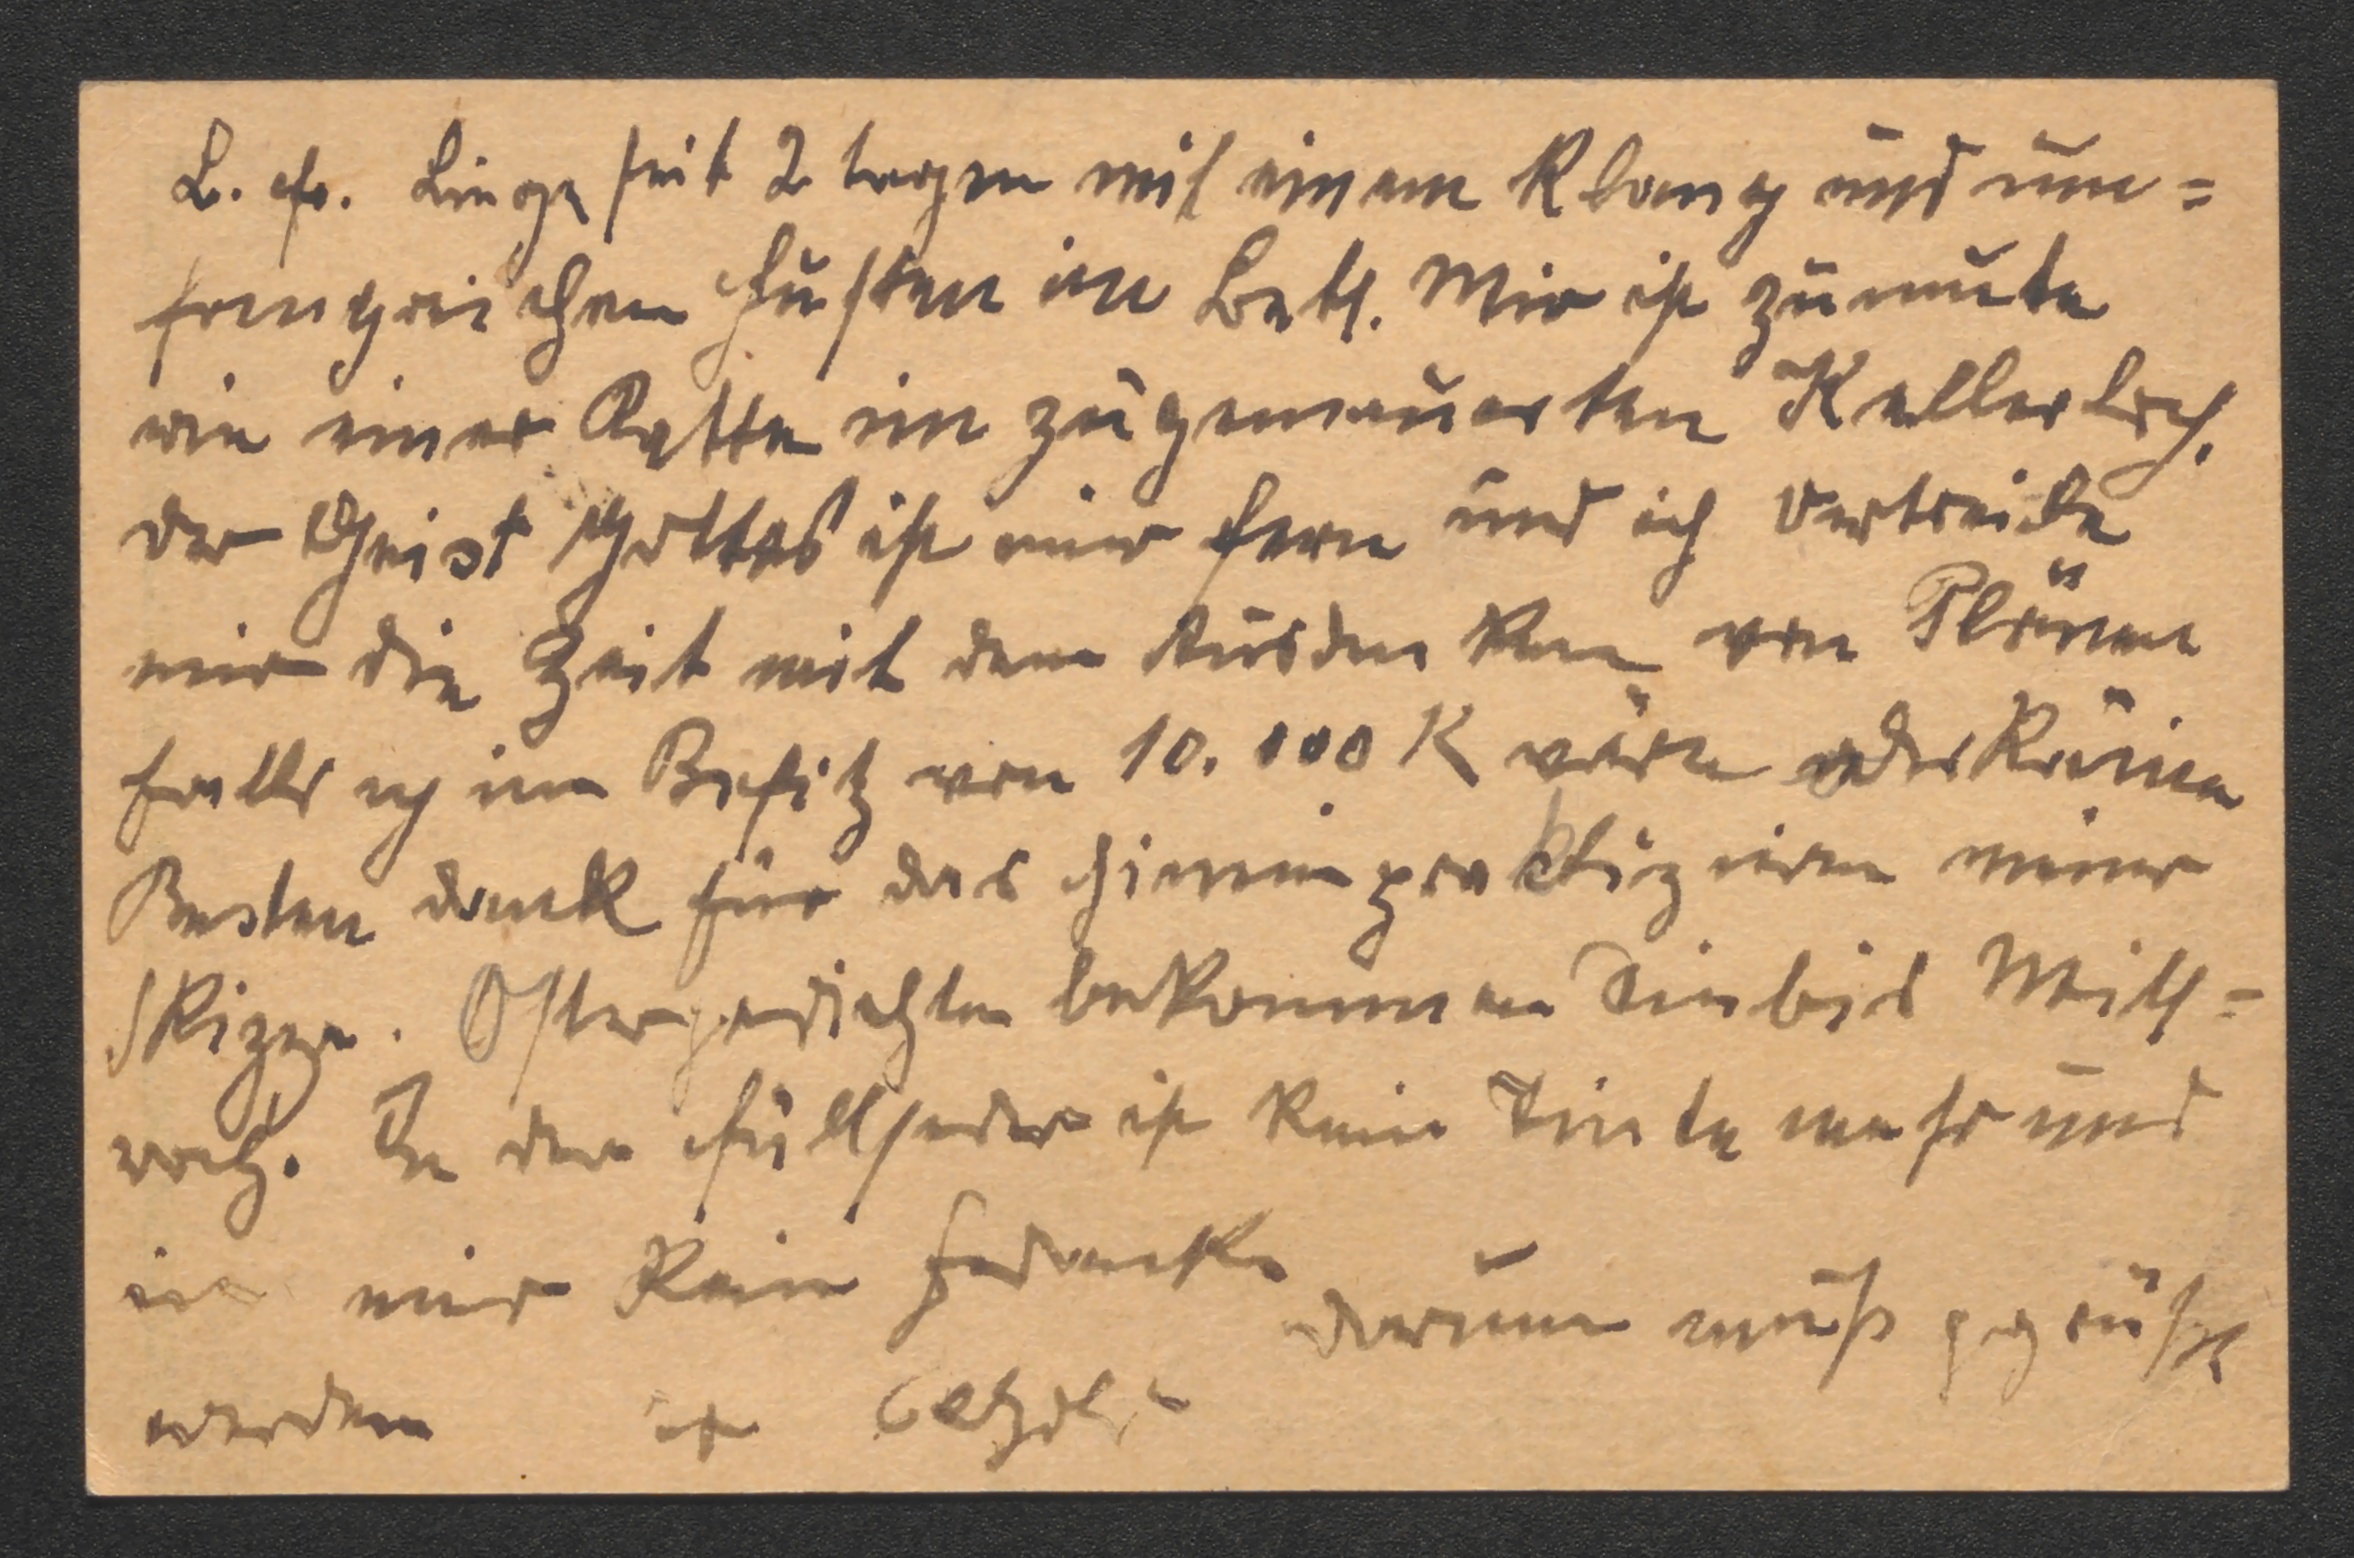 L. F. Liege seit 2 tagen mit einem klang und um=
fangreichen Husten im Bett. Mir ist zumute
wie einer Ratte im zugemauerten Kellerloch.
der Geist Gottes ist mir fern und ich vertreibe
mir die Zeit mit dem Ausdenken von Plänen
falls ich im Besitz von 10.000 K wäre oder käme
Besten dank für das hineinpraktizieren meiner
Skizze. Ostergedichte bekommen Sie bis Mitt=
woch. In der Füllfeder ist kein Tinte mehr und
in mir kein Gedanke darum muß gegrüßt
werden